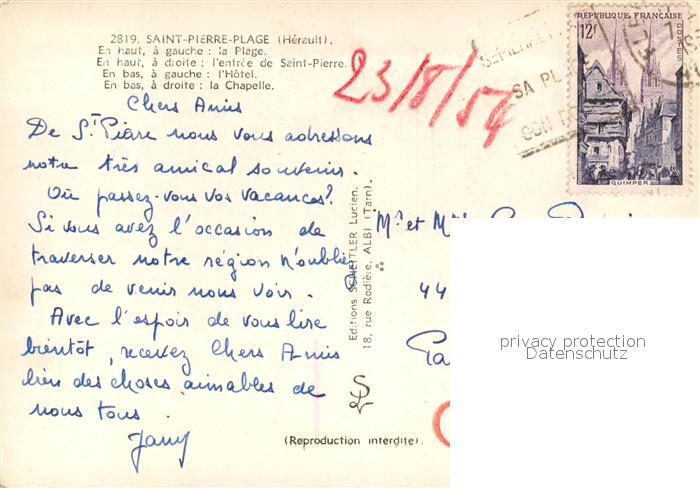 2819. SAINT-PIERRE-PLAGE (Hérault).
En haut, à gauche : la Plage.
En haut, à droite : l'entrée de Saint-Pierre.
En bas, à gauche : l'Hôtel.
En bas, à droite : la Chapelle.
23/8/54
SA PL
SON
RÉPUBLIQUE FRANÇAISE
12f
POSTES
QUIMPER
Chers Amis
De St Pierre nous vous adressons
notre très amical souvenir.
Où passez-vous vos vacances?
Si vous avez l'occasion de
traverser notre région n'oubliez
pas de venir nous voir.
Avec l'espoir de vous lire
bientôt, recevez Chers Amis
bien des choses aimables de
nous tous.
Jany
Editions SCHEITLER Lucien.
18, rue Rodière, ALBI (Tarn).
Mr et
44
(Reproduction interdite).
privacy protection
Datenschutz